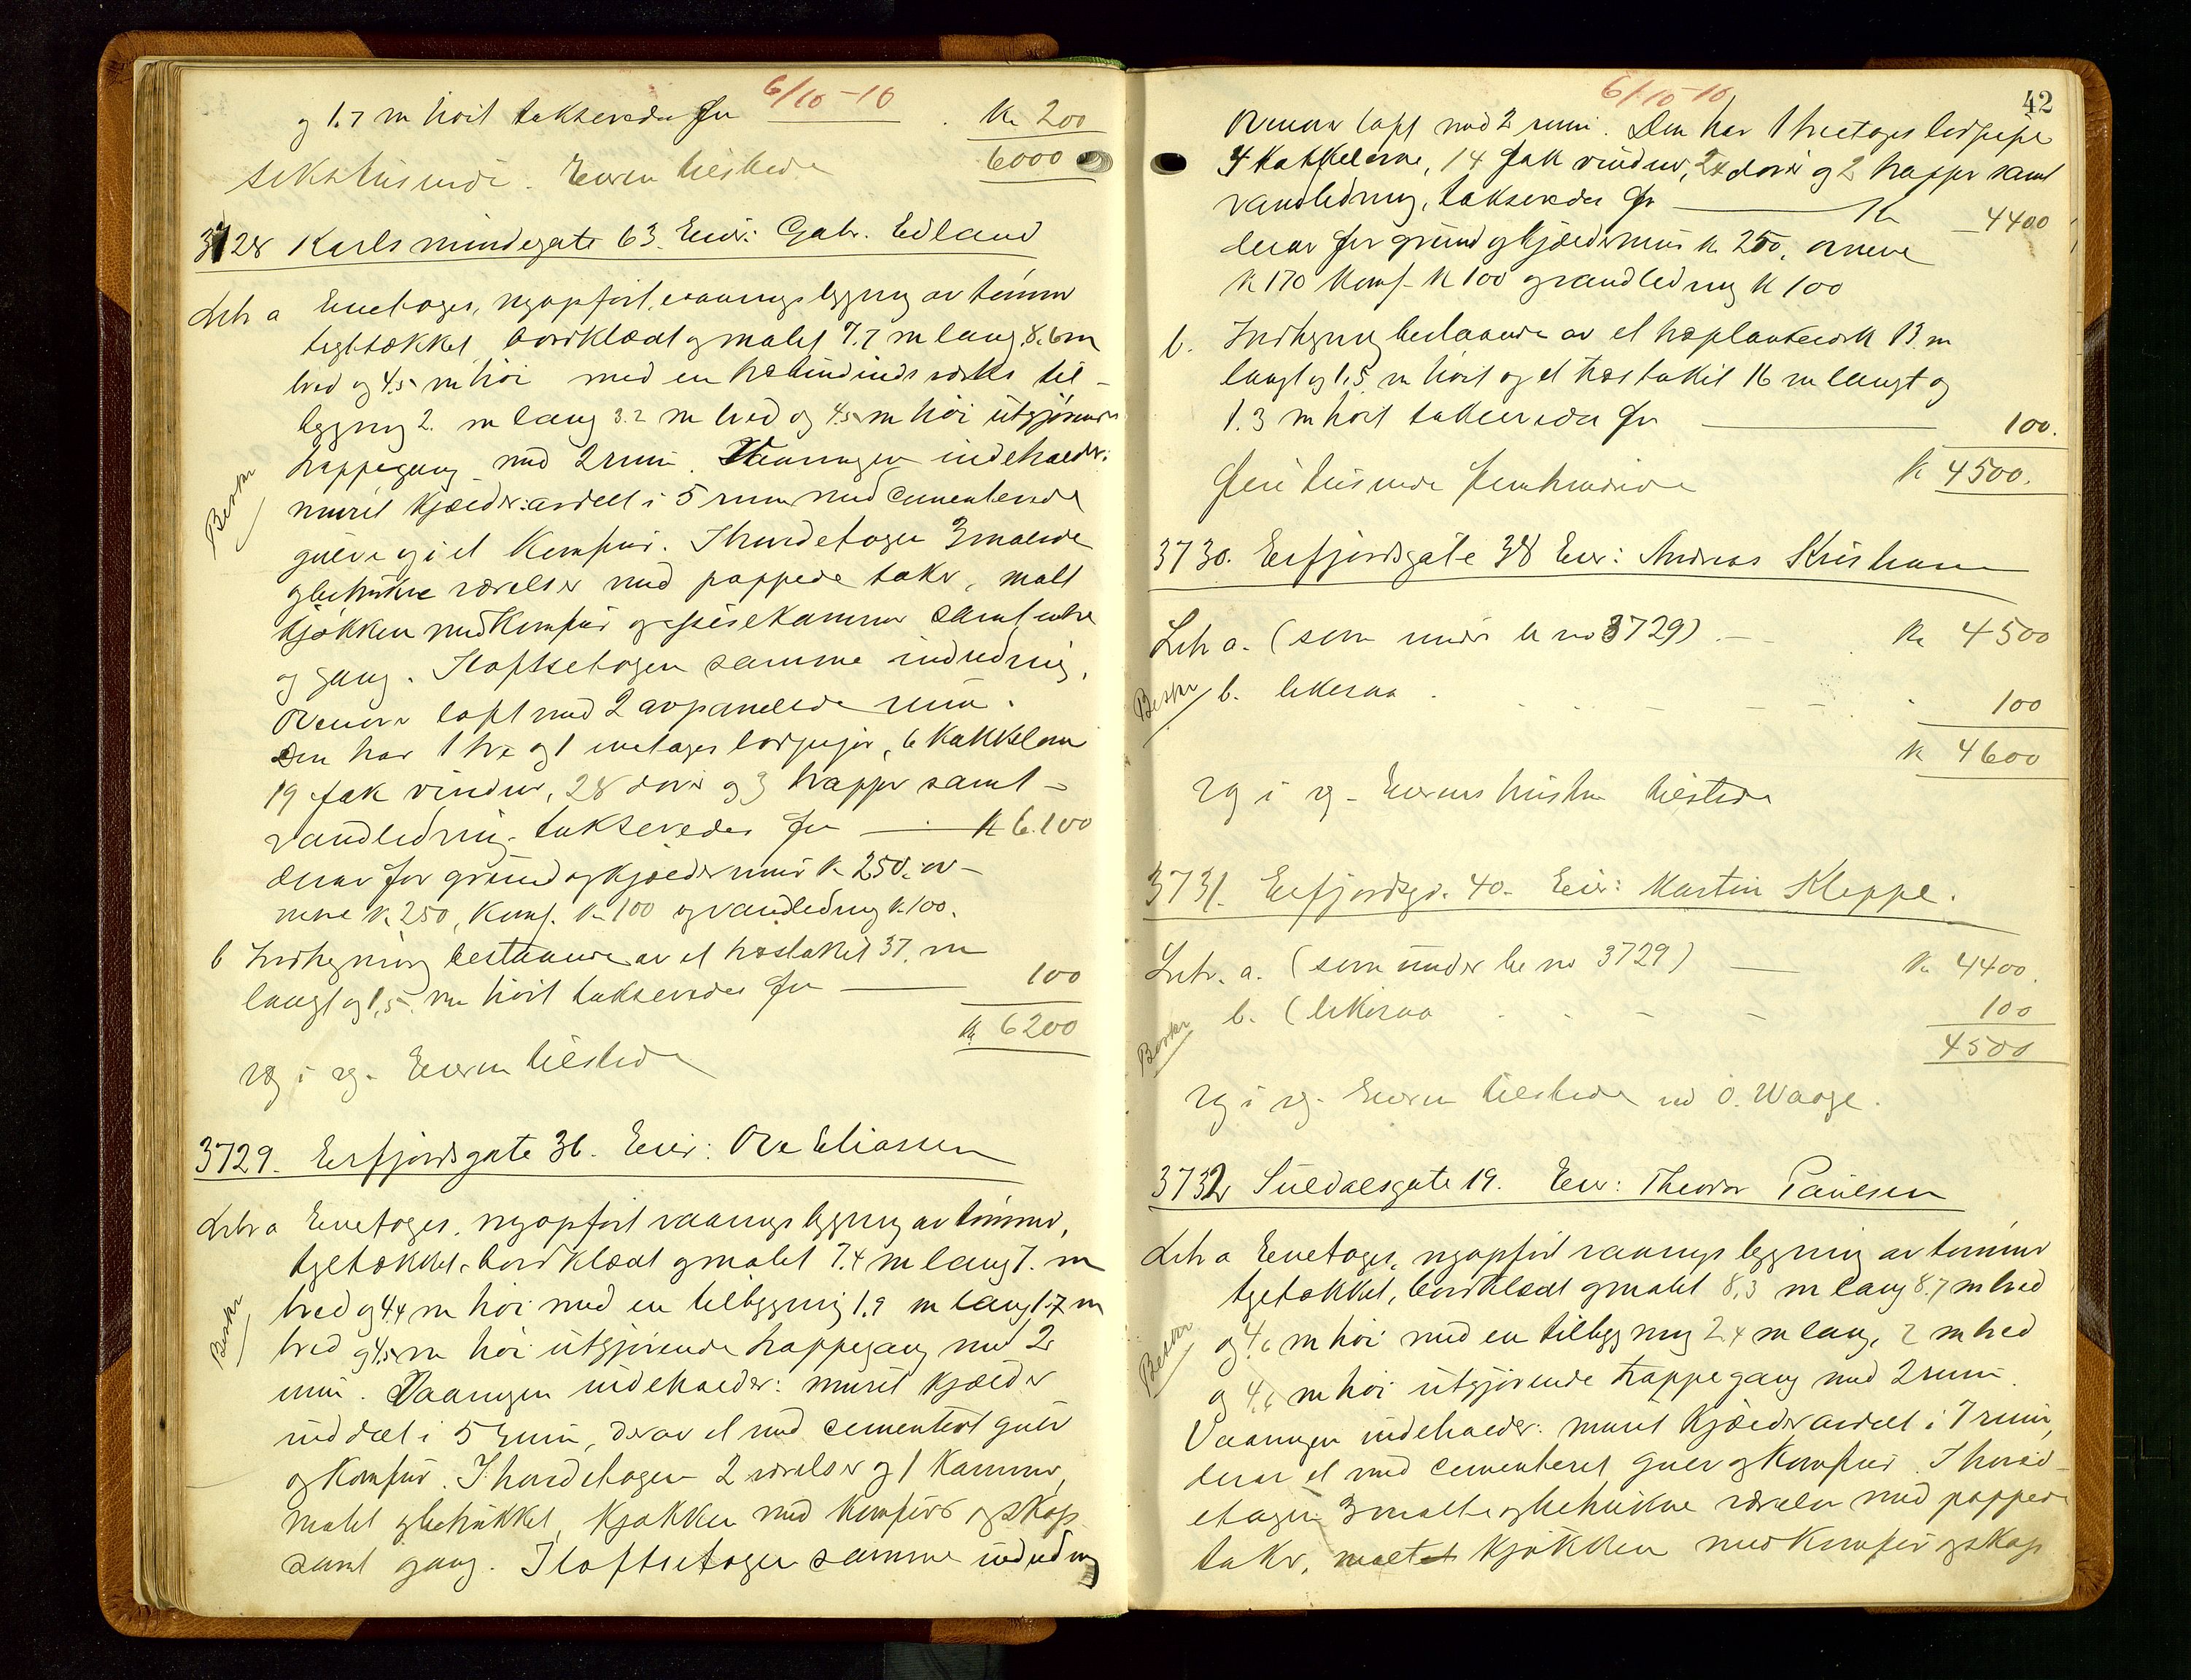 6/10-10
og 1.7 m høit takseredes for Kr 200
6000
sekstusinde. Eieren tilstede
3728 Karlsmindegate 63. Eier: Gabr. Edland
Litr a Enetages, nyopført vaaningsbygning av tømmer
tegltækket, bordklædt og malet 7.7 m lang 8.6 m
bred og 4.5 m høi med en træbindindsverks til-
bygning 2. m lang 3.2 m bred og 4.5 m høi utgjørende
trappegang med 2 rum. Vaaningen indeholder:
Beskr
muret kjælder avdelt i 5 rum med cementerede
gulve og i et Komfur. I hovedetagen 3 malede
og betrukne værelser med pappede taker, malt
kjøkken med Komfur og spisekammer samt entre
og gang. I loftsetagen samme indredning.
Ovenover loft med 2 avpanelede rum.
Den har 1 tre og 1 enetages ildpiper, 6 kakkelovne
19 fak vinduer, 28 dører og 3 trapper samt
vandledning. takseredes for Kr 6.100
derav for grund og kjældermur Kr. 250. ov-
nene Kr. 250, Komf. Kr 100 og vandledning Kr. 100.
b Indhegning bestaaende av et træstakit 37. m
langt og 1,5 m høit takseredes for 100
Kr 6200
rg i rg. Eieren tilstede
3729. Erfjordsgate 36. Eier: Ove Eliassen
Litr a Enetages, nyopført vaaningsbygning av tømmer,
tegltækket, bordklædt og malet 7.4 m lang 7. m
bred og 4.4 m høi med en tilbygning 1,9 m lang 1.7 m
Beskr
bred og 4.5 m høi utgjørende trappegang med 2
rum. Vaaningen indeholder: muret kjælder
inddelt i 5 rum, derav et med cementert gulv
og Komfur. I hovedetagen 2 værelser og 1 Kammer,
malet og betrukket, kjøkken med komfur og skap
samt gang. I loftsetagen samme indredning
6/10-10
42
Ovenover loft med 2 rum. Den har 1 treetages ildpipe
4 kakkelovne, 14 fak vinduer, 24 dører og 2 trapper samt
vandledning, takseredes for Kr 4400
derav for grund og kjældermur Kr. 250, ovnene
Kr 170 Komf. Kr 100 og vandledning Kr 100
b. Indhegning bestaaende av et træplankeværk 13. m
langt og 1,5 m høit og et træstakit 16 m langt og
1.3 m høit takseredes for 100.
Kr 4500.
fire tusinde femhundrede
3730. Erfjordsgate 38 Eier: Andreas Kristiansen
Litr a. (som under br no 3729) Kr 4500
Beskr
b. likesaa 100
Kr 4600
rg i rg. Eierens hustru tilstede
3731. Erfjordsgt. 40. Eier: Martin Kleppe.
Litr. a. (som under br no 3729) Kr 4400.
b. (likesaa 100
Beskr
4500
rg i rg. Eieren tilstede ved O. Waage.
3732 Suldalsgate 19. Eier: Theodor Paulsen
Litr a Enetages, nyopført vaaningsbygning av tømmer
tegltækket, bordklædt og malet 8,3 m lang 8.7 m bred
og 4.6 m høi med en tilbygning 2.4 m lang, 2 m bred
Beskr
og 4.6 m høi utgjørende trappegang med 2 rum.
Vaaningen indeholder: muret kjælder avdelt i 7 rum,
derav et med cementeret gulv og komfur. I hoved-
etagen 3 malte og betrukne værelser med pappede
taker, malt kjøkken med Komfur og skap